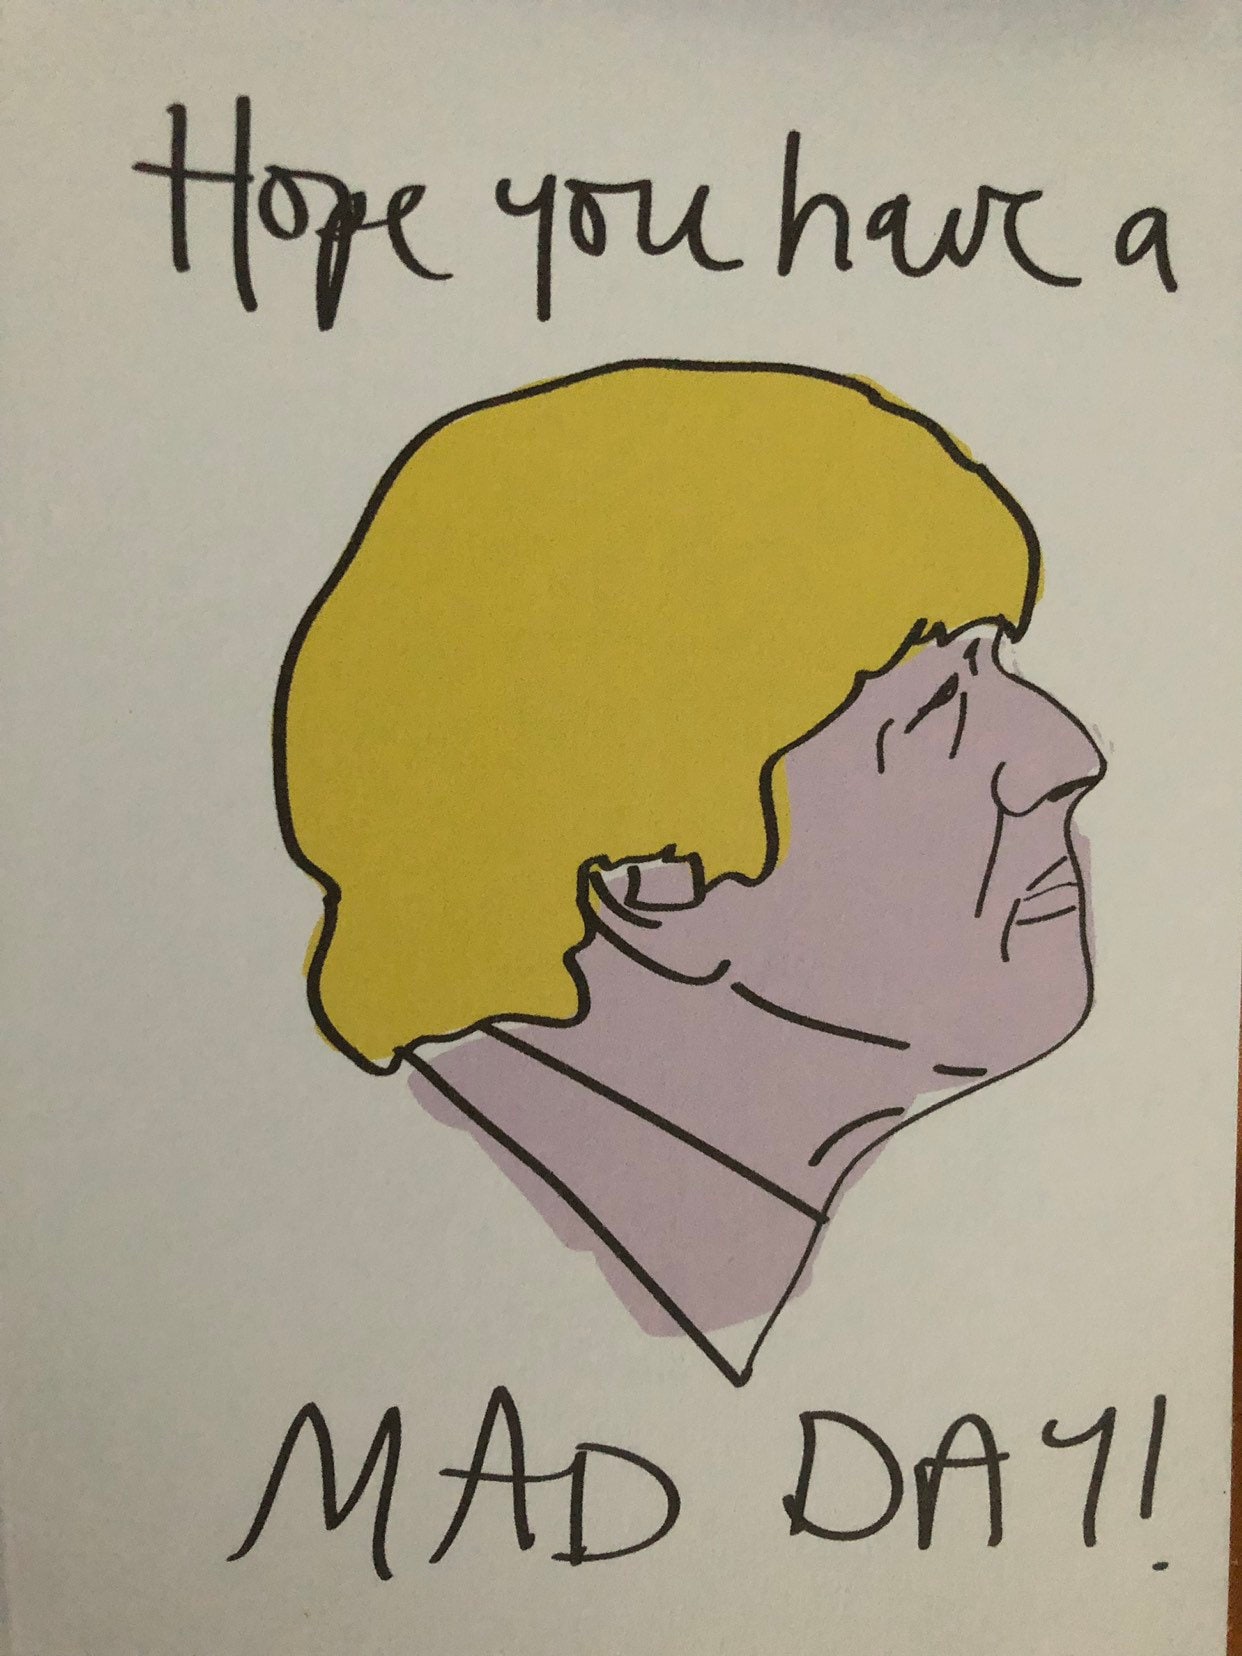 Hope you have a
MAD DAY!